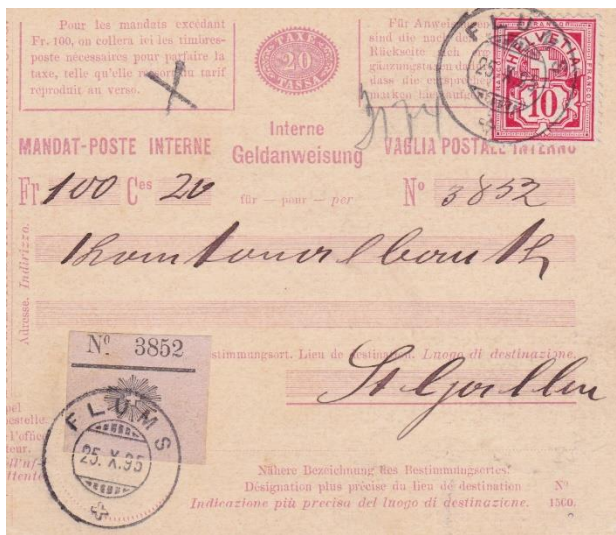 Pour les mandats excédant
Fr. 100, on collera ici les timbres-
poste nécessaires pour parfaire la
taxe, telle qu'elle ressort du tarif
reproduit au verso.
TAXE
20
TASSA
Für Anweisungen
sind die nach der
Rückseite
dass die
HELVETIA
FRANCO
10
FLUMS
25. X. 95
MANDAT-POSTE INTERNE
Interne
Geldanweisung
VAGLIA POSTALE INTERNO
Fr. 100 Ces 20
für — pour — per
Nº 3852
Adresse. Indirizzo.
Kantonalbank
Nº 3852
stimmungsort. Lieu de destination. Luogo di destinazione.
St Gallen
FLUMS
25. X. 95
Nähere Bezeichnung des Bestimmungsortes:
Désignation plus précise du lieu de destination
Indicazione più precisa del luogo di destinazione.
Nº
1560.